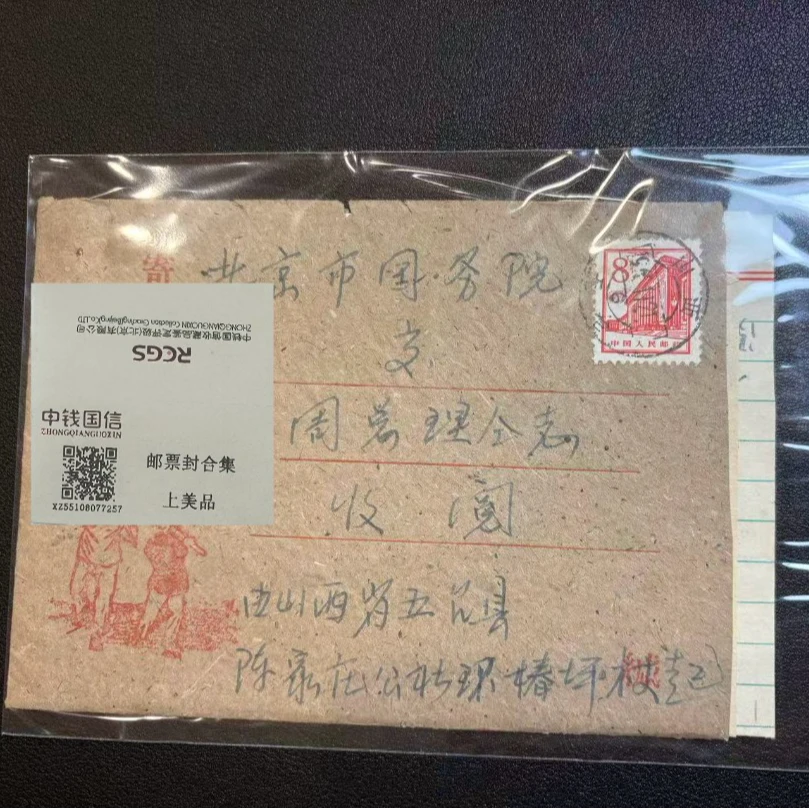 寄
北京市国务院
8
中国人民邮政
交
中钱国信收藏品鉴定评级(北京)有限公司
RCGS
中钱国信
ZHONGQIANGUOXIN
邮票封合集
上美品
XZ55108077257
周总理仝志
收阅
由山西省五台县
陈家庄公社